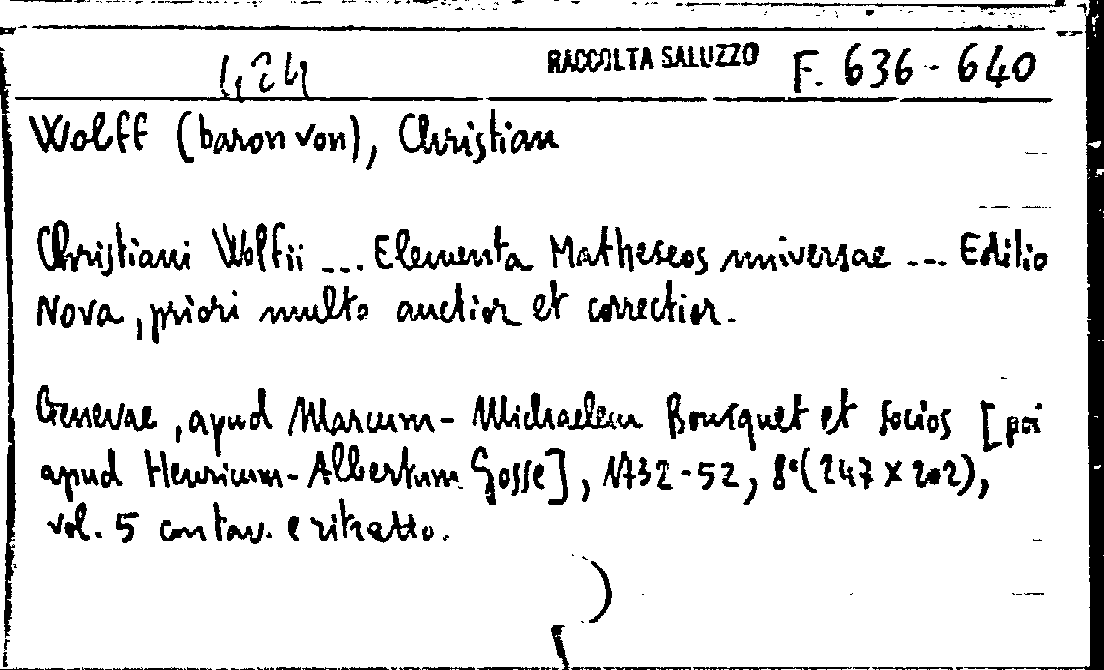 424 RACCOLTA SALUZZO F. 636-640
Wolff (baron von), Christian
Christiani Wolfii ... Elementa Matheseos universae ... Editio
Nova, priori multo auctior et correctior.
Genevae, apud Marcum-Michaelem Bousquet et socios [poi
apud Henricum-Albertum Gosse], 1732-52, 8°(247 x 202),
vol. 5 con tav. e ritratto.